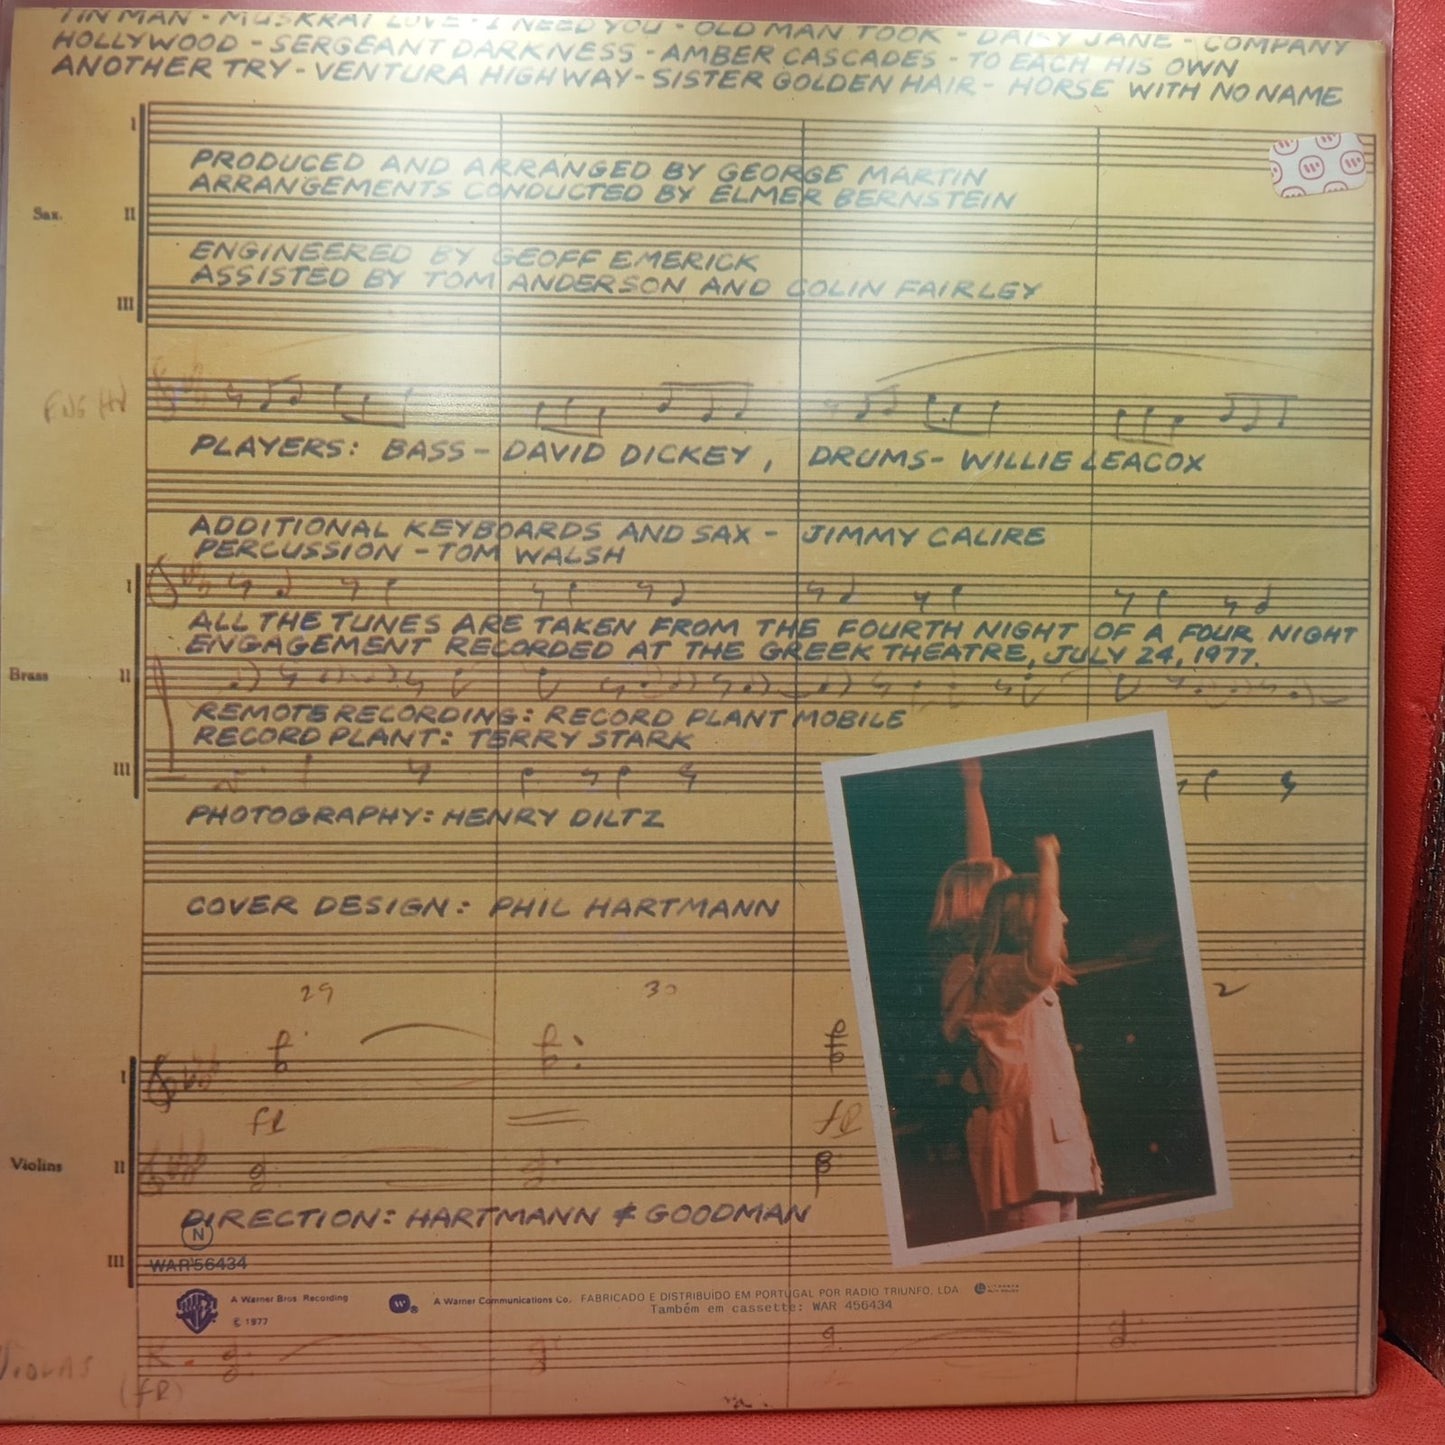 TIN MAN - MUSKRAT LOVE - I NEED YOU - OLD MAN TOOK - DAISY JANE - COMPANY
HOLLYWOOD - SERGEANT DARKNESS - AMBER CASCADES - TO EACH HIS OWN
ANOTHER TRY - VENTURA HIGHWAY - SISTER GOLDEN HAIR - HORSE WITH NO NAME
I
PRODUCED AND ARRANGED BY GEORGE MARTIN
ARRANGEMENTS CONDUCTED BY ELMER BERNSTEIN
Sax. II
ENGINEERED BY GEOFF EMERICK
ASSISTED BY TOM ANDERSON AND COLIN FAIRLEY
III
PLAYERS: BASS - DAVID DICKEY, DRUMS - WILLIE LEACOX
ADDITIONAL KEYBOARDS AND SAX - JIMMY CALIRE
PERCUSSION - TOM WALSH
I
ALL THE TUNES ARE TAKEN FROM THE FOURTH NIGHT OF A FOUR NIGHT
ENGAGEMENT RECORDED AT THE GREEK THEATRE, JULY 24, 1977.
Brass II
REMOTE RECORDING: RECORD PLANT MOBILE
RECORD PLANT: TERRY STARK
III
PHOTOGRAPHY: HENRY DILTZ
COVER DESIGN: PHIL HARTMANN
29 30 2
I
Violins II
DIRECTION: HARTMANN & GOODMAN
N
III WAR 56434
A Warner Bros. Recording
© 1977
W ® A Warner Communications Co. FABRICADO E DISTRIBUIDO EM PORTUGAL POR RADIO TRIUNFO, LDA
Também em cassette: WAR 456434
VIOLAS